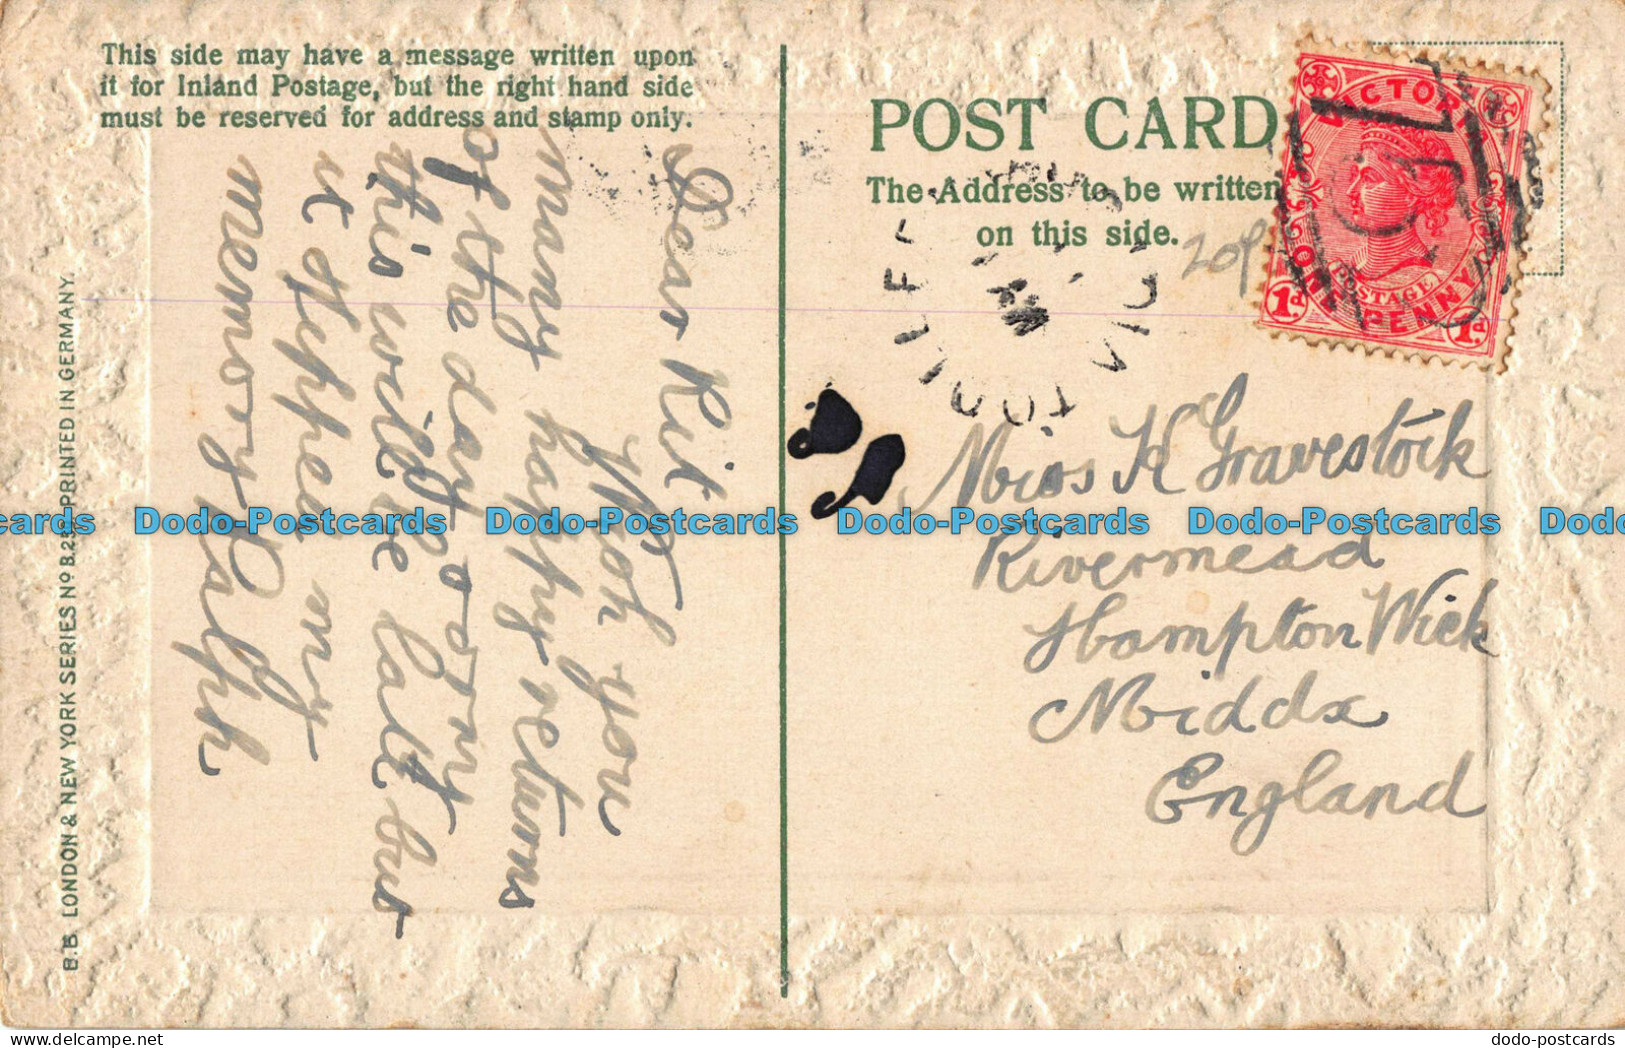 This side may have a message written upon
it for Inland Postage, but the right hand side
must be reserved for address and stamp only.
Dear Kit
Wish you
many happy returns
of the day sorry
this will be late but
it slipped my
memory Ralph
B.B. LONDON & NEW YORK SERIES No B.25 PRINTED IN GERMANY.
POST CARD
The Address to be written
on this side.
20p
VICTORIA
POSTAGE
ONE PENNY
1d. 1d.
VIC
Miss K Gravestock
Rivermead
Hampton Wick
Middx
England
Dodo-Postcards Dodo-Postcards Dodo-Postcards Dodo-Postcards
dodo-postcards
dodo-postcards